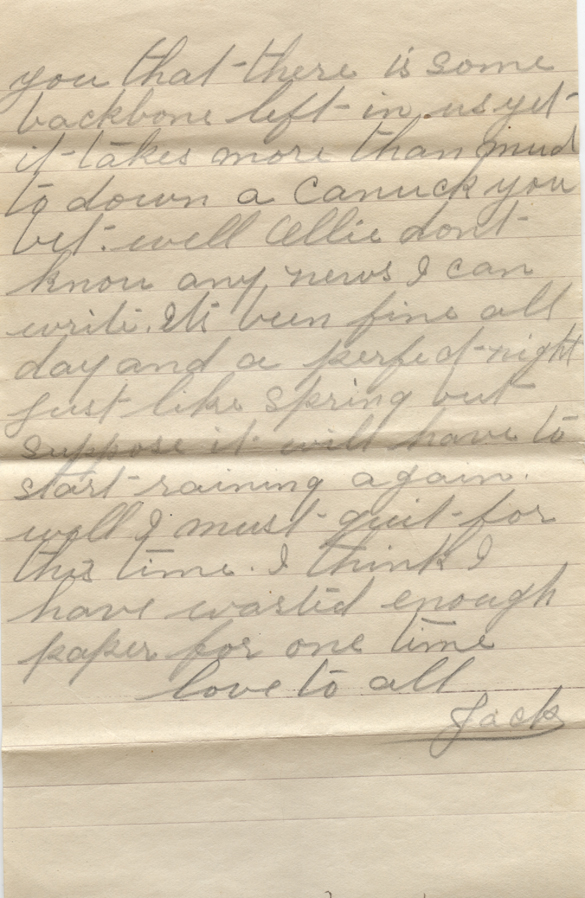 you that there is some
backbone left in us yet
it takes more than mud
to down a Canuck you
bet. well Ollie dont
know any news I can
write. Its been fine all
day and a perfect night
just like spring but
suppose it will have to
start raining again.
well I must quit for
this time. I think I
have wasted enough
paper for one time
love to all
Jack